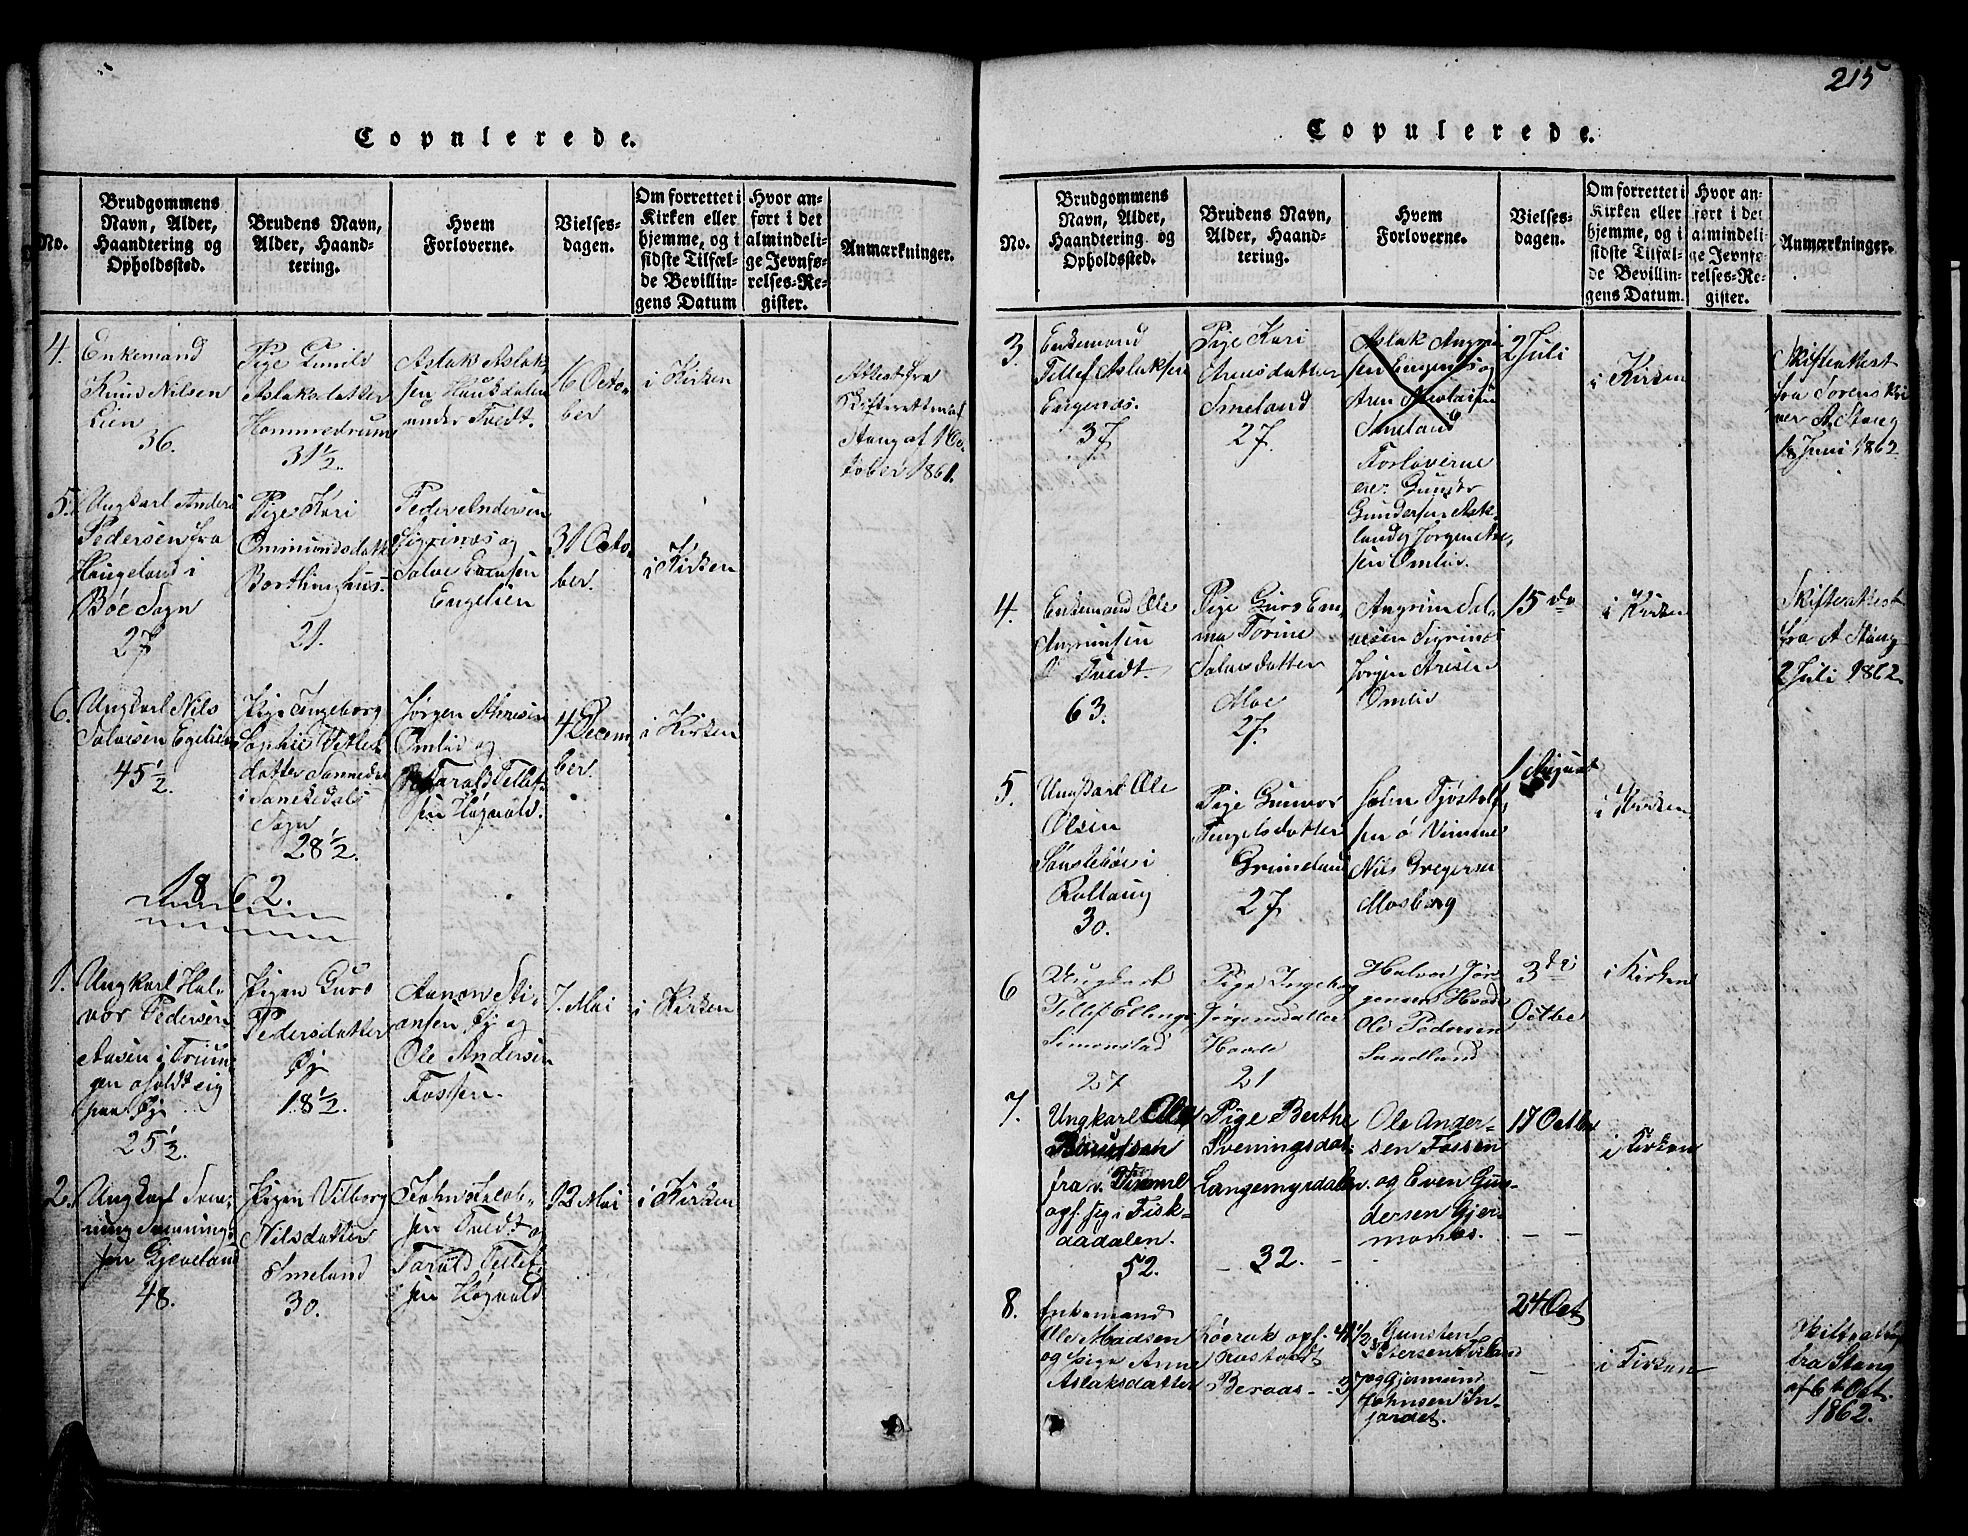 215
Copulerede.
No.
Brudgommens
Navn, Alder,
Haandtering og
Opholdssted.
Brudens Navn,
Alder, Haand-
tering.
Hvem
Forloverne.
Vielses-
dagen.
Om forrettet i
Kirken eller
hjemme, og i
sidste Tilfæl-
de Bevillin-
gens Datum
Hvor an-
ført i det
almindeli-
ge Jevnfø-
relses-Re-
gister.
Anmærkninger.
4.
Enkemand
Knud Nilsen
Lien
36.
Pige Gunild
Aslaksdatter
Hommedrum
31 1/2.
Aslak Aslak
sen Hauksdalen
under Tvedt.
16 Octo-
ber
i Kirken
Attest fra
Skifteretten af
Stang af 1 Oc-
tober 1861.
5.
Ungkarl Anders
Pedersen fra
Haugeland i
Bøe Sogn
27
Pige Kari
Omundsdatt
21.
Peder Andersen
Sigrinæs og
31 Octo-
ber.
i Kirken
6.
Ungkarl Nils
Salvesen Egelien
45 1/2.
Pige Ingeborg
Sophie
datter
i Sanekedals
Sogn
28 1/2.
Jørgen
Omlid og
Tarald Tellef-
sen Høgvold.
4 Decem-
ber.
i Kirken
1862.
1.
Ungkarl Hal-
vor Pedersen
25 1/2.
Pigen Guro
Pedersdatter
Øy
18 1/2.
Aanon
ansen Øy og
Ole Andersen
Fossen.
7. Mai
i Kirken
2.
Ungkarl
48.
Pigen Vilborg
Nilsdatter
Smeland
30.
John Jacob-
sen Tvedt og
Tarald Tellef
sen Høgvold
12 Mai
i Kirken
Copulerede.
No.
Brudgommens
Navn, Alder,
Haandtering og
Opholdssted.
Brudens Navn,
Alder, Haand-
tering.
Hvem
Forloverne.
Vielses-
dagen.
Om forrettet i
Kirken eller
hjemme, og i
sidste Tilfæl-
de Bevillin-
gens Datum.
Hvor an-
ført i det
almindeli-
ge Jevnfø-
relses-Re-
gister.
Anmærkninger.
3.
Enkemand
Tellef Aslaksen
Engenæs.
37
Pige Kari
Arensdatter
Smeland
27.
Aslak Angrim
sen Engenæs og
Aren Nicolaisen
Smeland
Forloverne
er: Gunder
Gundersen Ask-
land og Jørgen Are-
sen Omlid.
2 Juli
i Kirken
Skifteattest
fra Sorenskri
ver A. Stang
18 Juni 1862
4.
Enkemand Ole
Angrimsen
Tvedt.
63.
Pige Guro Em-
ma Torine
Salvesdatter
Moe
27.
Angrim Sal-
vesen Sigrinæs
Jørgen Aresen
Omlid
15 do
i Kirken
Skifteattest
fra A Stang
2 Juli 1862
5.
Ungkarl Ole
Olsen
30.
Pige Gunvor
Engelsdatter
Grimeland
27
John Tjøstolf
sen
Nils Gregersen
Mosberg
1 August
i Kirken
6
Ungkarl
Tellef Ellings.
Simonstad
27
Pige Ingeborg
Jørgensdatter
Hovde
21
Halvor Jør
gensen Hovde
Ole Pedersen
Sandland
3die
Octbr
i Kirken
7.
Ungkarl Ole
Knudsen
opf. sig i Fisk-
aadalen.
52.
Pige Berthe
Sveningsdat.
Langemyrdalen.
32.
Ole Ander-
sen Fossen
og Even Gun-
dersen Gjer-
monæs.
17 Octbr
i Kirken
8.
Enkemand
Ole Madsen
og Pige Anne
Aslaksdatter
opf. 41 1/2
37
Gunsten
og Gjermund
Johnsen In-
jordet.
24 Oct
i Kirken
fra Stang
af 6te Oct.
1862.